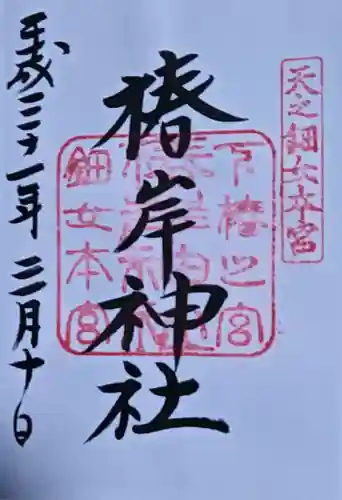 天之鈿女本宮
下椿之宮
椿岸神社
鈿女本宮
椿岸神社
平成三十一年三月十日